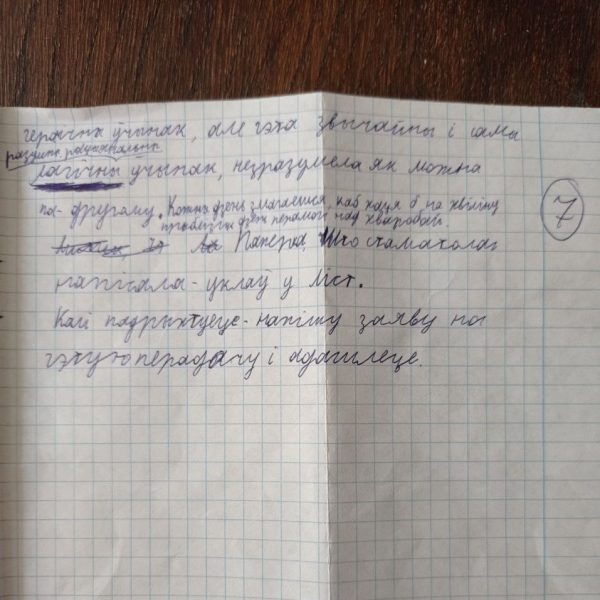 гераічны ўчынак, але гэта звычайны і самы
разумны, рацыянальны
лагічны ўчынак, незразумела як можна
па-другому. Кожны дзень змагаемся, каб хаця б на хвіліну
прыблізіць дзень перамогі над хваробай.
Паперку, што стаматолаг
напісала - уклаў у ліст.
Калі падрыхтуеце - напішу заяву на
гэтую перадачу і адашлеце.
7